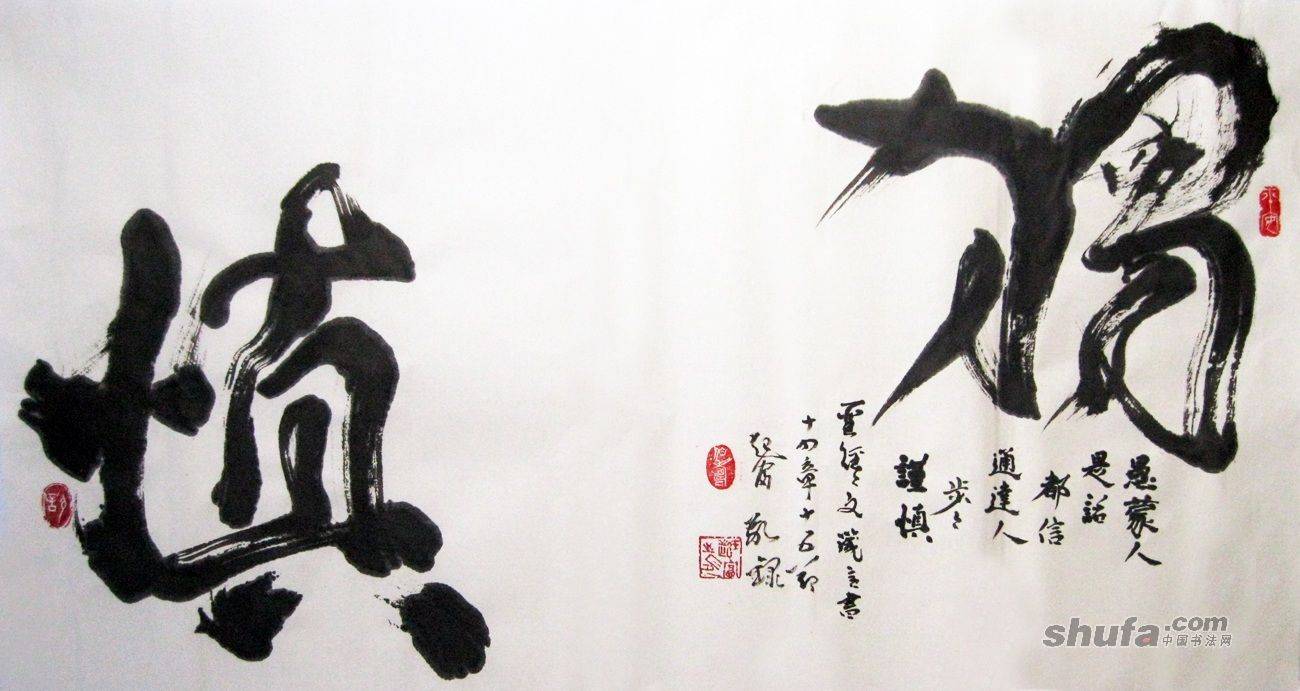 慎
愚蒙人
是話
都信
通達人
步〻
謹慎
聖經文箴言書
十四章十五節
起富 敬錄
shufa.com
中国书法网